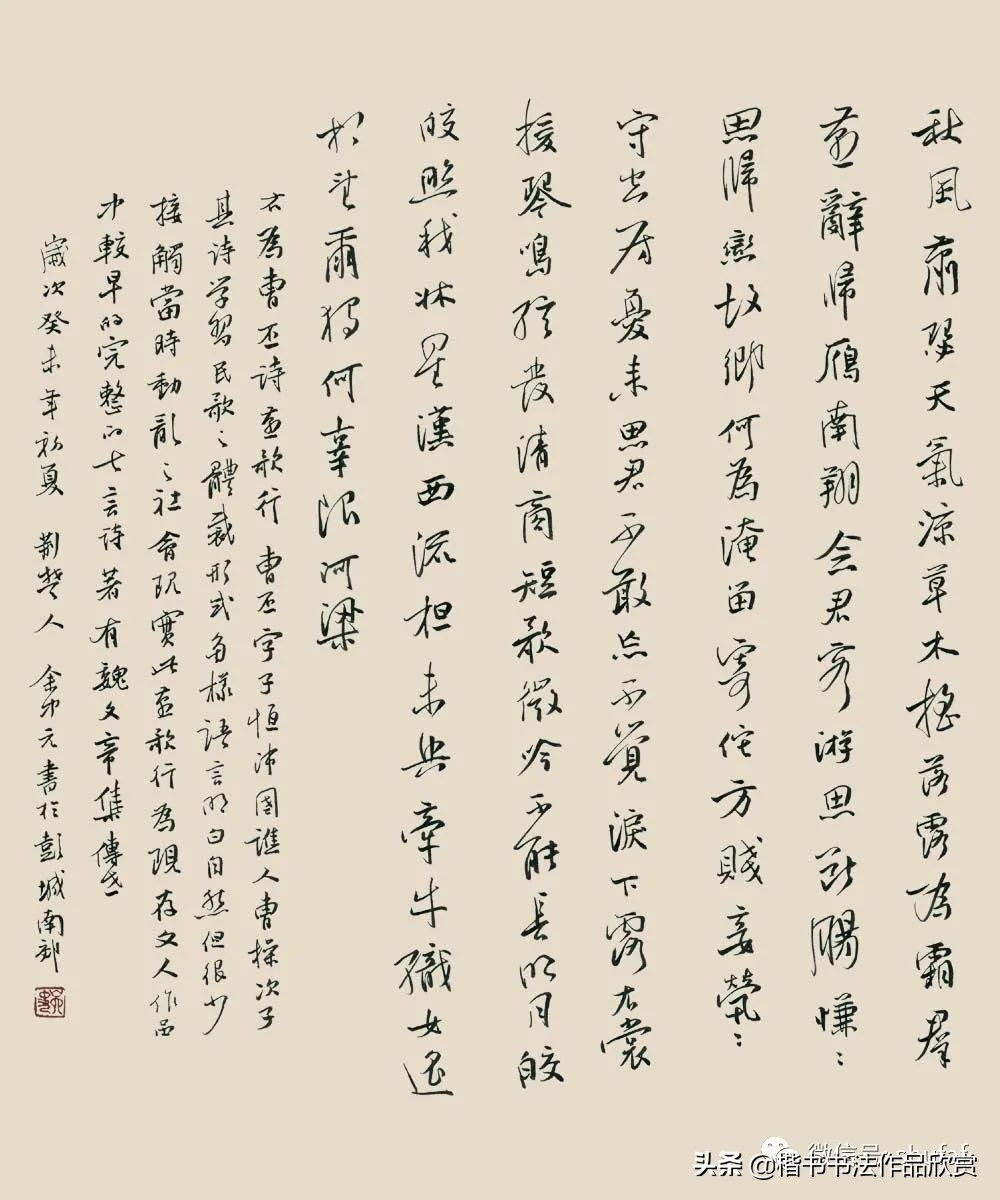 秋風蕭瑟天氣涼草木搖落露為霜群
燕辭歸雁南翔念君客游思斷腸慊〻
思歸戀故鄉何為淹留寄佗方賤妾煢〻
守空房憂来思君不敢忘不覺淚下霑衣裳
援琴鳴弦發清商短歌微吟不能長明月皎
皎照我牀星漢西流夜未央牽牛織女遙
相望爾獨何辜限河梁
右為曹丕詩燕歌行 曹丕字子恒沛國譙人曹操次子
其诗学習民歌之體裁形式多樣語言明白自然但很少
接觸當時動亂之社會現實此燕歌行為現存文人作品
中較早的完整的七言詩著有魏文帝集傳世
歲次癸未年初夏 荆楚人 余中元書於彭城南郊
头条 @楷书书法作品欣赏
微信号